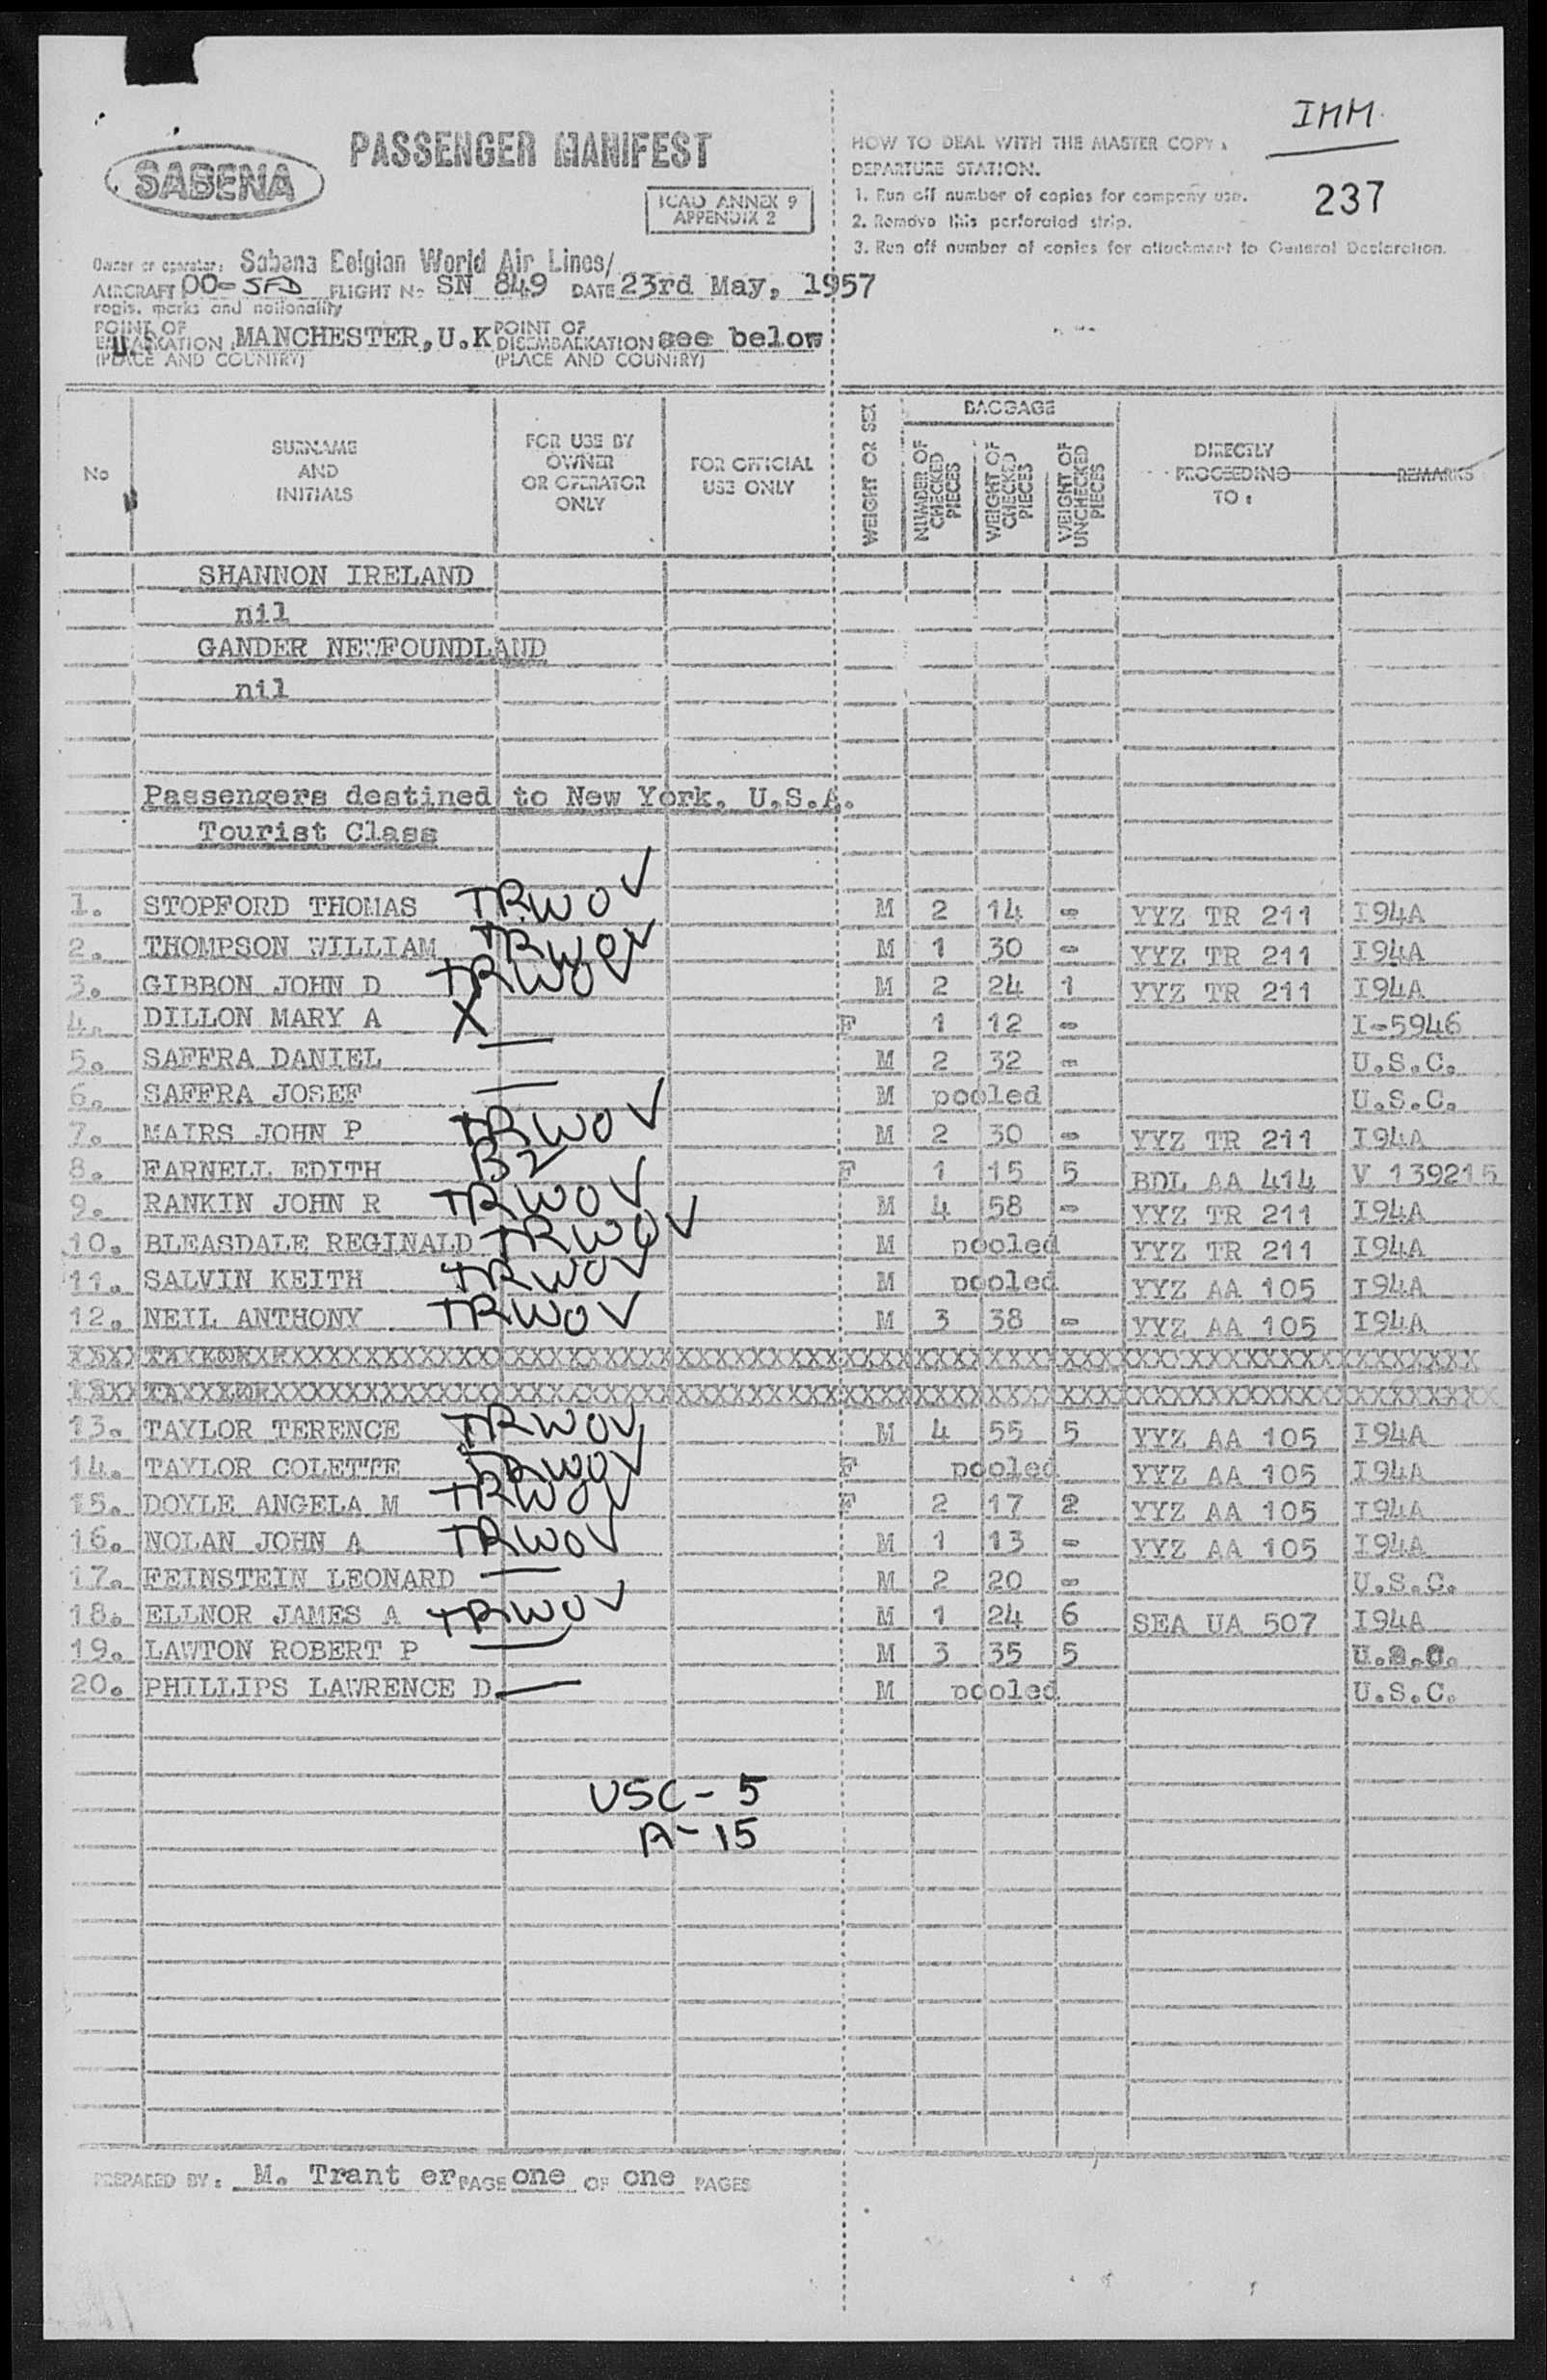 IMM.
237
SABENA
PASSENGER MANIFEST
ICAO ANNEX 9
APPENDIX 2
HOW TO DEAL WITH THE MASTER COPY.
DEPARTURE STATION.
1. Run off number of copies for company use.
2. Remove this perforated strip.
3. Run off number of copies for attachment to General Declaration.
Owner or operator: Sabena Belgian World Air Lines/
AIRCRAFT OO-SFD FLIGHT No SN 849 DATE 23rd May, 1957
regis. marks and nationality
POINT OF EMBARKATION MANCHESTER, U.K POINT OF DISEMBARKATION see below
(PLACE AND COUNTRY) (PLACE AND COUNTRY)
No SURNAME AND INITIALS FOR USE BY OWNER OR OPERATOR ONLY FOR OFFICIAL USE ONLY WEIGHT OR SEX BAGGAGE NUMBER OF CHECKED PIECES WEIGHT OF CHECKED PIECES WEIGHT OF UNCHECKED PIECES DIRECTLY PROCEEDING TO: REMARKS
SHANNON IRELAND
nil
GANDER NEWFOUNDLAND
nil
Passengers destined to New York, U.S.A.
Tourist Class
1. STOPFORD THOMAS TRWOV M 2 14 - YYZ TR 211 I94A
2. THOMPSON WILLIAM TRWOV M 1 30 - YYZ TR 211 I94A
3. GIBBON JOHN D TRWOV M 2 24 1 YYZ TR 211 I94A
4. DILLON MARY A X F 1 12 - I-5946
5. SAFFRA DANIEL — M 2 32 - U.S.C.
6. SAFFRA JOSEF — M pooled U.S.C.
7. MAIRS JOHN P TRWOV M 2 30 - YYZ TR 211 I94A
8. FARNELL EDITH B2 F 1 15 5 BDL AA 414 V 139215
9. RANKIN JOHN R TRWOV M 4 58 - YYZ TR 211 I94A
10. BLEASDALE REGINALD TRWOV M pooled YYZ TR 211 I94A
11. SALVIN KEITH TRWOV M pooled YYZ AA 105 I94A
12. NEIL ANTHONY TRWOV M 3 38 - YYZ AA 105 I94A
13. TAYLOR TERENCE TRWOV M 4 55 5 YYZ AA 105 I94A
14. TAYLOR COLETTE TRWOV F pooled YYZ AA 105 I94A
15. DOYLE ANGELA M TRWOV F 2 17 2 YYZ AA 105 I94A
16. NOLAN JOHN A TRWOV M 1 13 - YYZ AA 105 I94A
17. FEINSTEIN LEONARD — M 2 20 - U.S.C.
18. ELLNOR JAMES A TRWOV M 1 24 6 SEA UA 507 I94A
19. LAWTON ROBERT P — M 3 35 5 U.S.C.
20. PHILLIPS LAWRENCE D. — M pooled U.S.C.
USC - 5
A - 15
PREPARED BY: M. Trant er PAGE one OF one PAGES